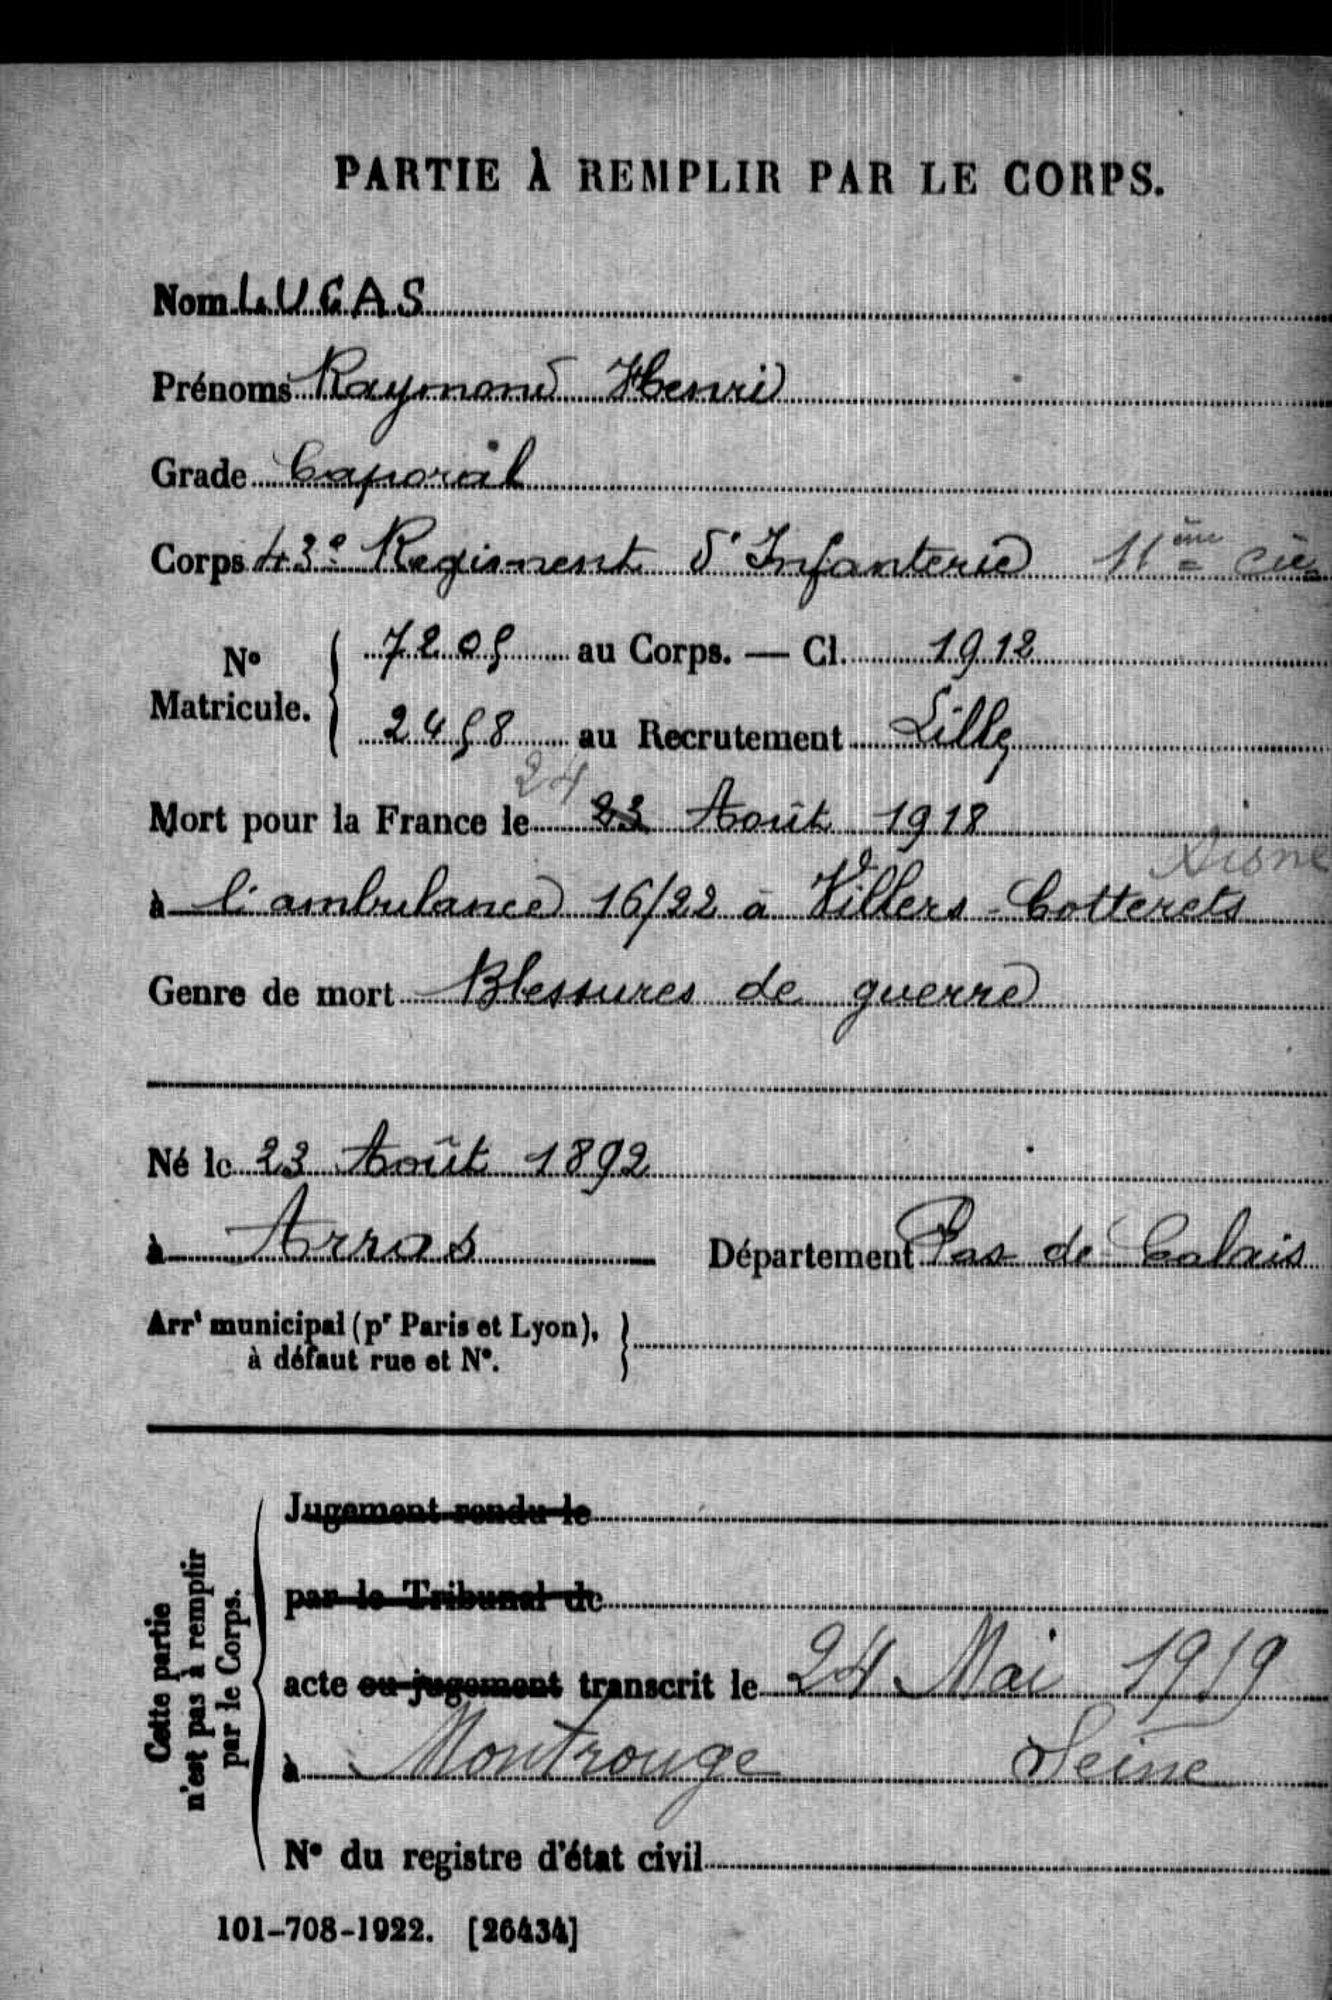 PARTIE À REMPLIR PAR LE CORPS.
Nom LUCAS
Prénoms Raymond Henri
Grade Caporal
Corps 43e Regiment d'Infanterie 11ème Cie
No Matricule. 7205 au Corps. — Cl. 1912
2458 au Recrutement Lille
24
Mort pour la France le 23 Août 1918
Aisne
à l'ambulance 16/22 à Villers-Cotterets
Genre de mort Blessures de guerre
Né le 23 Août 1892
à Arras Département Pas de Calais
Arrt municipal (pr Paris et Lyon),
à défaut rue et No.
Cette partie
n'est pas à remplir
par le Corps.
Jugement rendu le
par le Tribunal de
acte ou jugement transcrit le 24 Mai 1919
à Montrouge Seine
No du registre d'état civil
101-708-1922. [26434]